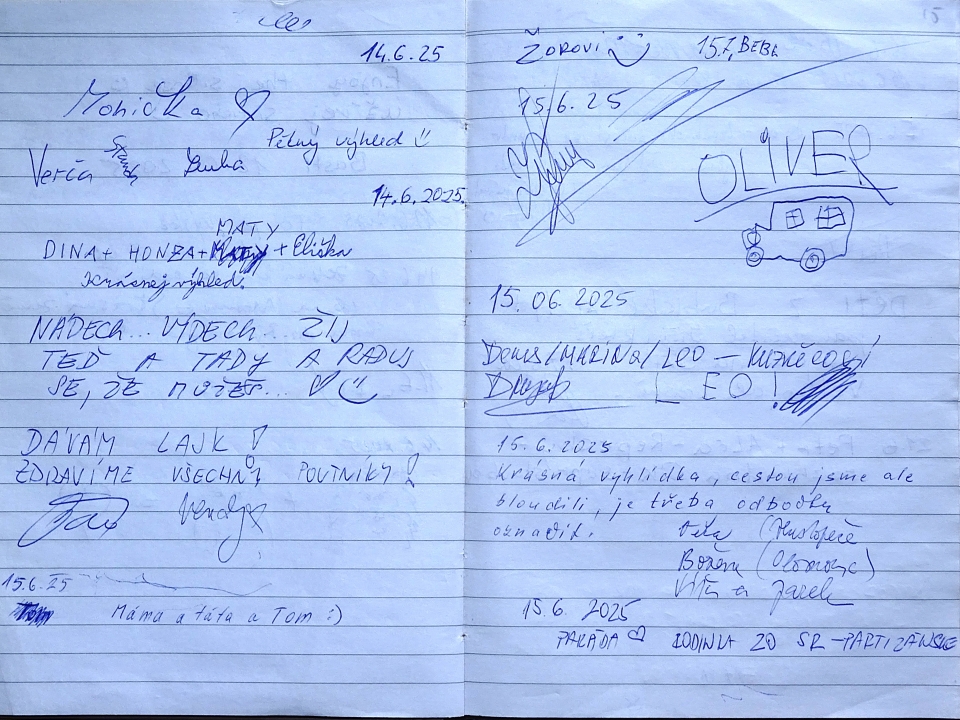 14.6.25
Monička ♡
Pěkný výhled
Verča Luba
14.6.2025
MATY
DINA + HONZA + + Eliška
Krásnej výhled.
NÁDECH... VÝDECH... ŽIJ
TEĎ A TADY A RADUJ
SE, ŽE MŮŽEŠ... ♡
DÁVÁM LAJK !
ZDRAVÍME VŠECHNY POUTNÍKY !
15.6.25
Máma a táta a Tom :)
15
ŽOROVI 15.7, BEBE
15.6.25
OLIVER
15.06.2025
Denis/MARINA/LEO –
LEO!
15.6.2025
Krásná vyhlídka, cestou jsme ale
bloudili, je třeba odbočku
označit. Věra (Hustopeče
Božena (Olomouc)
Víťa a Jarek
15.6.2025
PARÁDA ♡ RODINKA ZO SR – PARTIZÁNSKE